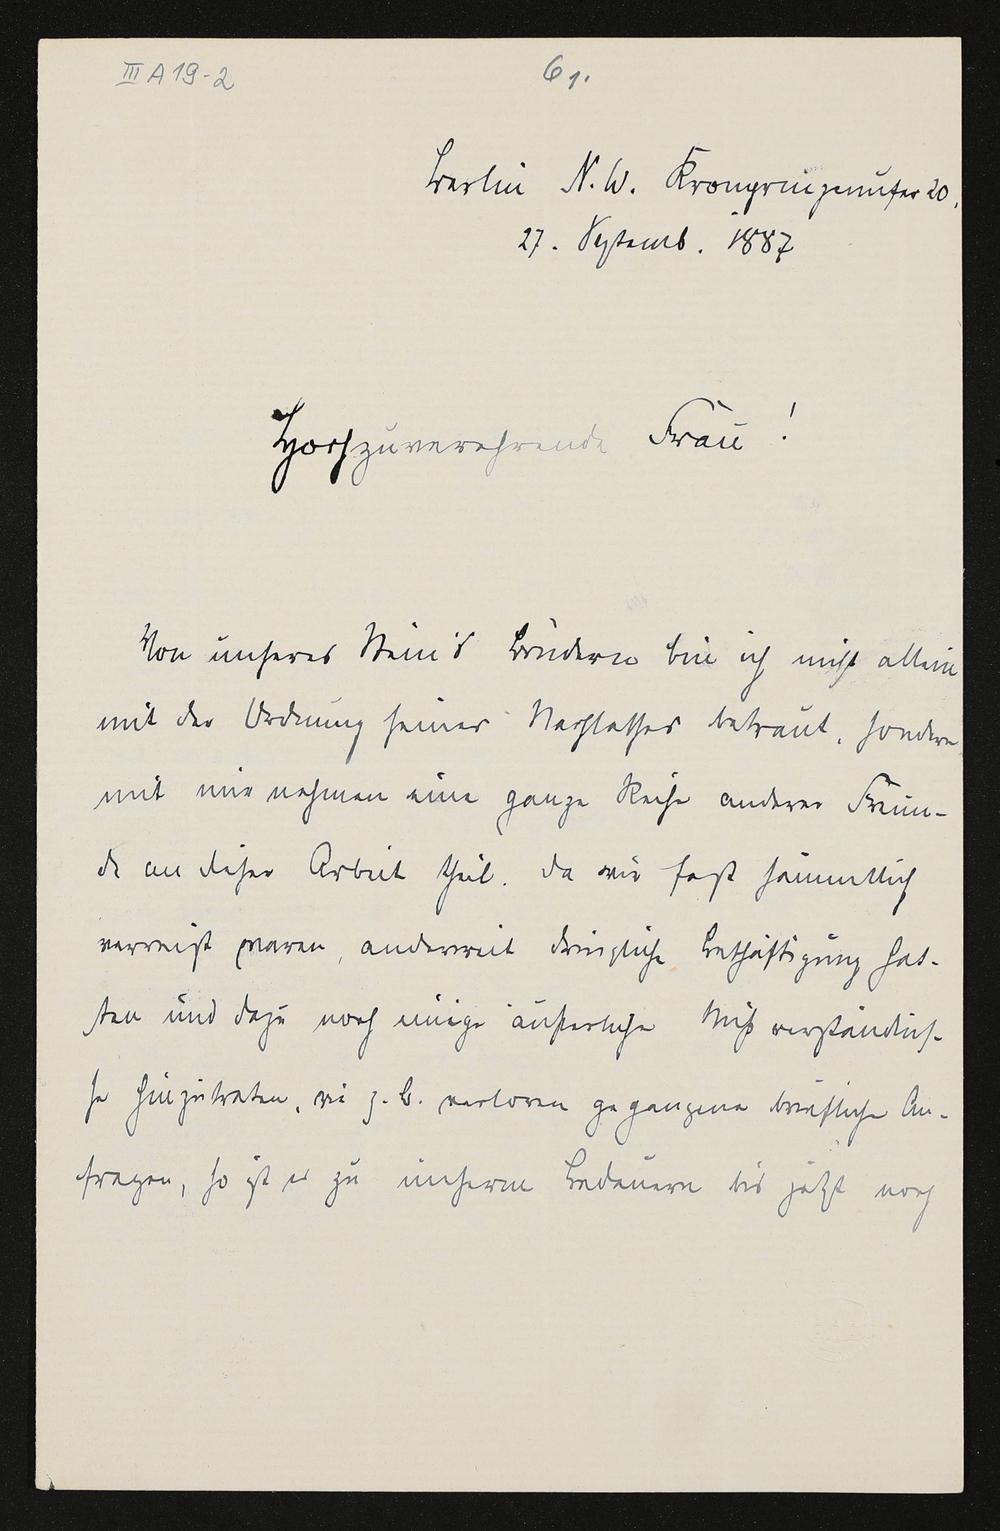 III A 19-2
61.
Berlin N. W. Kronprinzenufer 20.
27. Septemb. 1887
Hochzuverehrende Frau!
Von unseres Stein's Brüdern bin ich nicht allein
mit der Ordnung seines Nachlasses betraut, sondern
mit mir nehmen eine ganze Reihe anderer Freun-
de an dieser Arbeit theil. Da wir fast sämmtlich
verreist waren, anderweit dringliche Beschäftigung hat-
ten und dazu noch einige äußerliche Mißverständnis-
se hinzutraten, wie z. B. verloren gegangene briefliche An-
fragen, so ist es zu unserm Bedauern bis jetzt noch